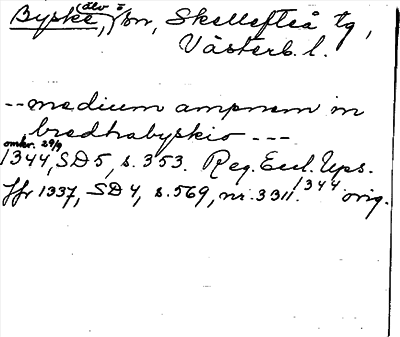 Byske, (älv i) bn, Skellefteå tg,
Västerb. l.
-- medium ampnem in
bredhabyskio ---
omkr. 29/9
1344, SD 5, s. 353. Reg. Eccl. Ups.
Jfr 1337, SD 4, s. 569, nr. 3311. 1344 orig.